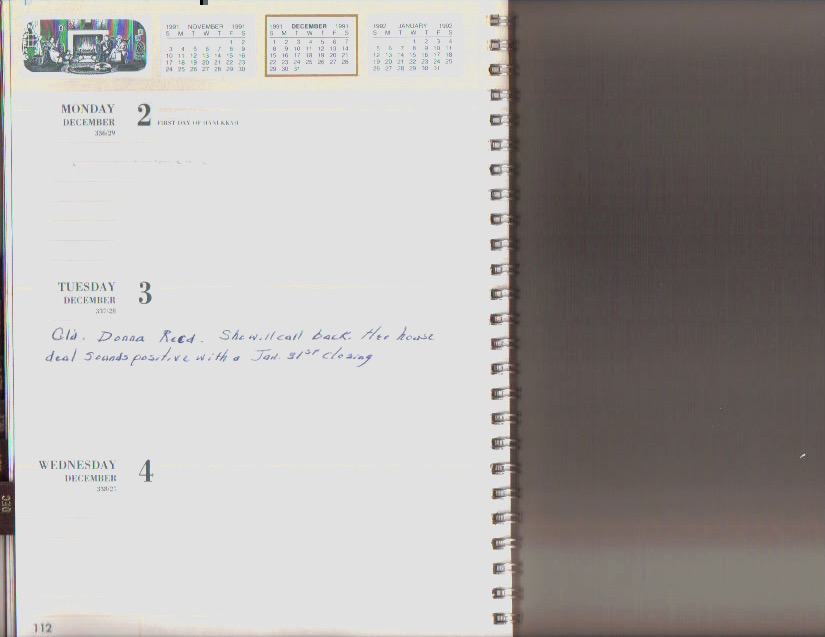 1991 NOVEMBER 1991
S M T W T F S
1 2
3 4 5 6 7 8 9
10 11 12 13 14 15 16
17 18 19 20 21 22 23
24 25 26 27 28 29 30
1991 DECEMBER 1991
S M T W T F S
1 2 3 4 5 6 7
8 9 10 11 12 13 14
15 16 17 18 19 20 21
22 23 24 25 26 27 28
29 30 31
1992 JANUARY 1992
S M T W T F S
1 2 3 4
5 6 7 8 9 10 11
12 13 14 15 16 17 18
19 20 21 22 23 24 25
26 27 28 29 30 31
MONDAY 2
DECEMBER FIRST DAY OF HANUKKAH
336/29
TUESDAY 3
DECEMBER
337/28
Cld. Donna Reed. She will call back. Her house
deal sounds positive with a Jan. 31st closing
WEDNESDAY 4
DECEMBER
338/27
DEC
112